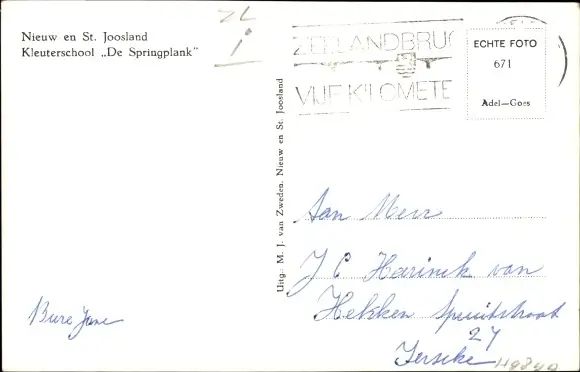 Nieuw en St. Joosland
Kleuterschool „De Springplank"
ZL
i
ZEELANDBRUG
VIJF KILOMETE
ECHTE FOTO
671
Adel—Goes
Uitg.: M. J. van Zweden, Nieuw en St. Joosland
Aan
J C Harinck van
Hekken Spuitstraat
27
Ierseke
Bure Jane